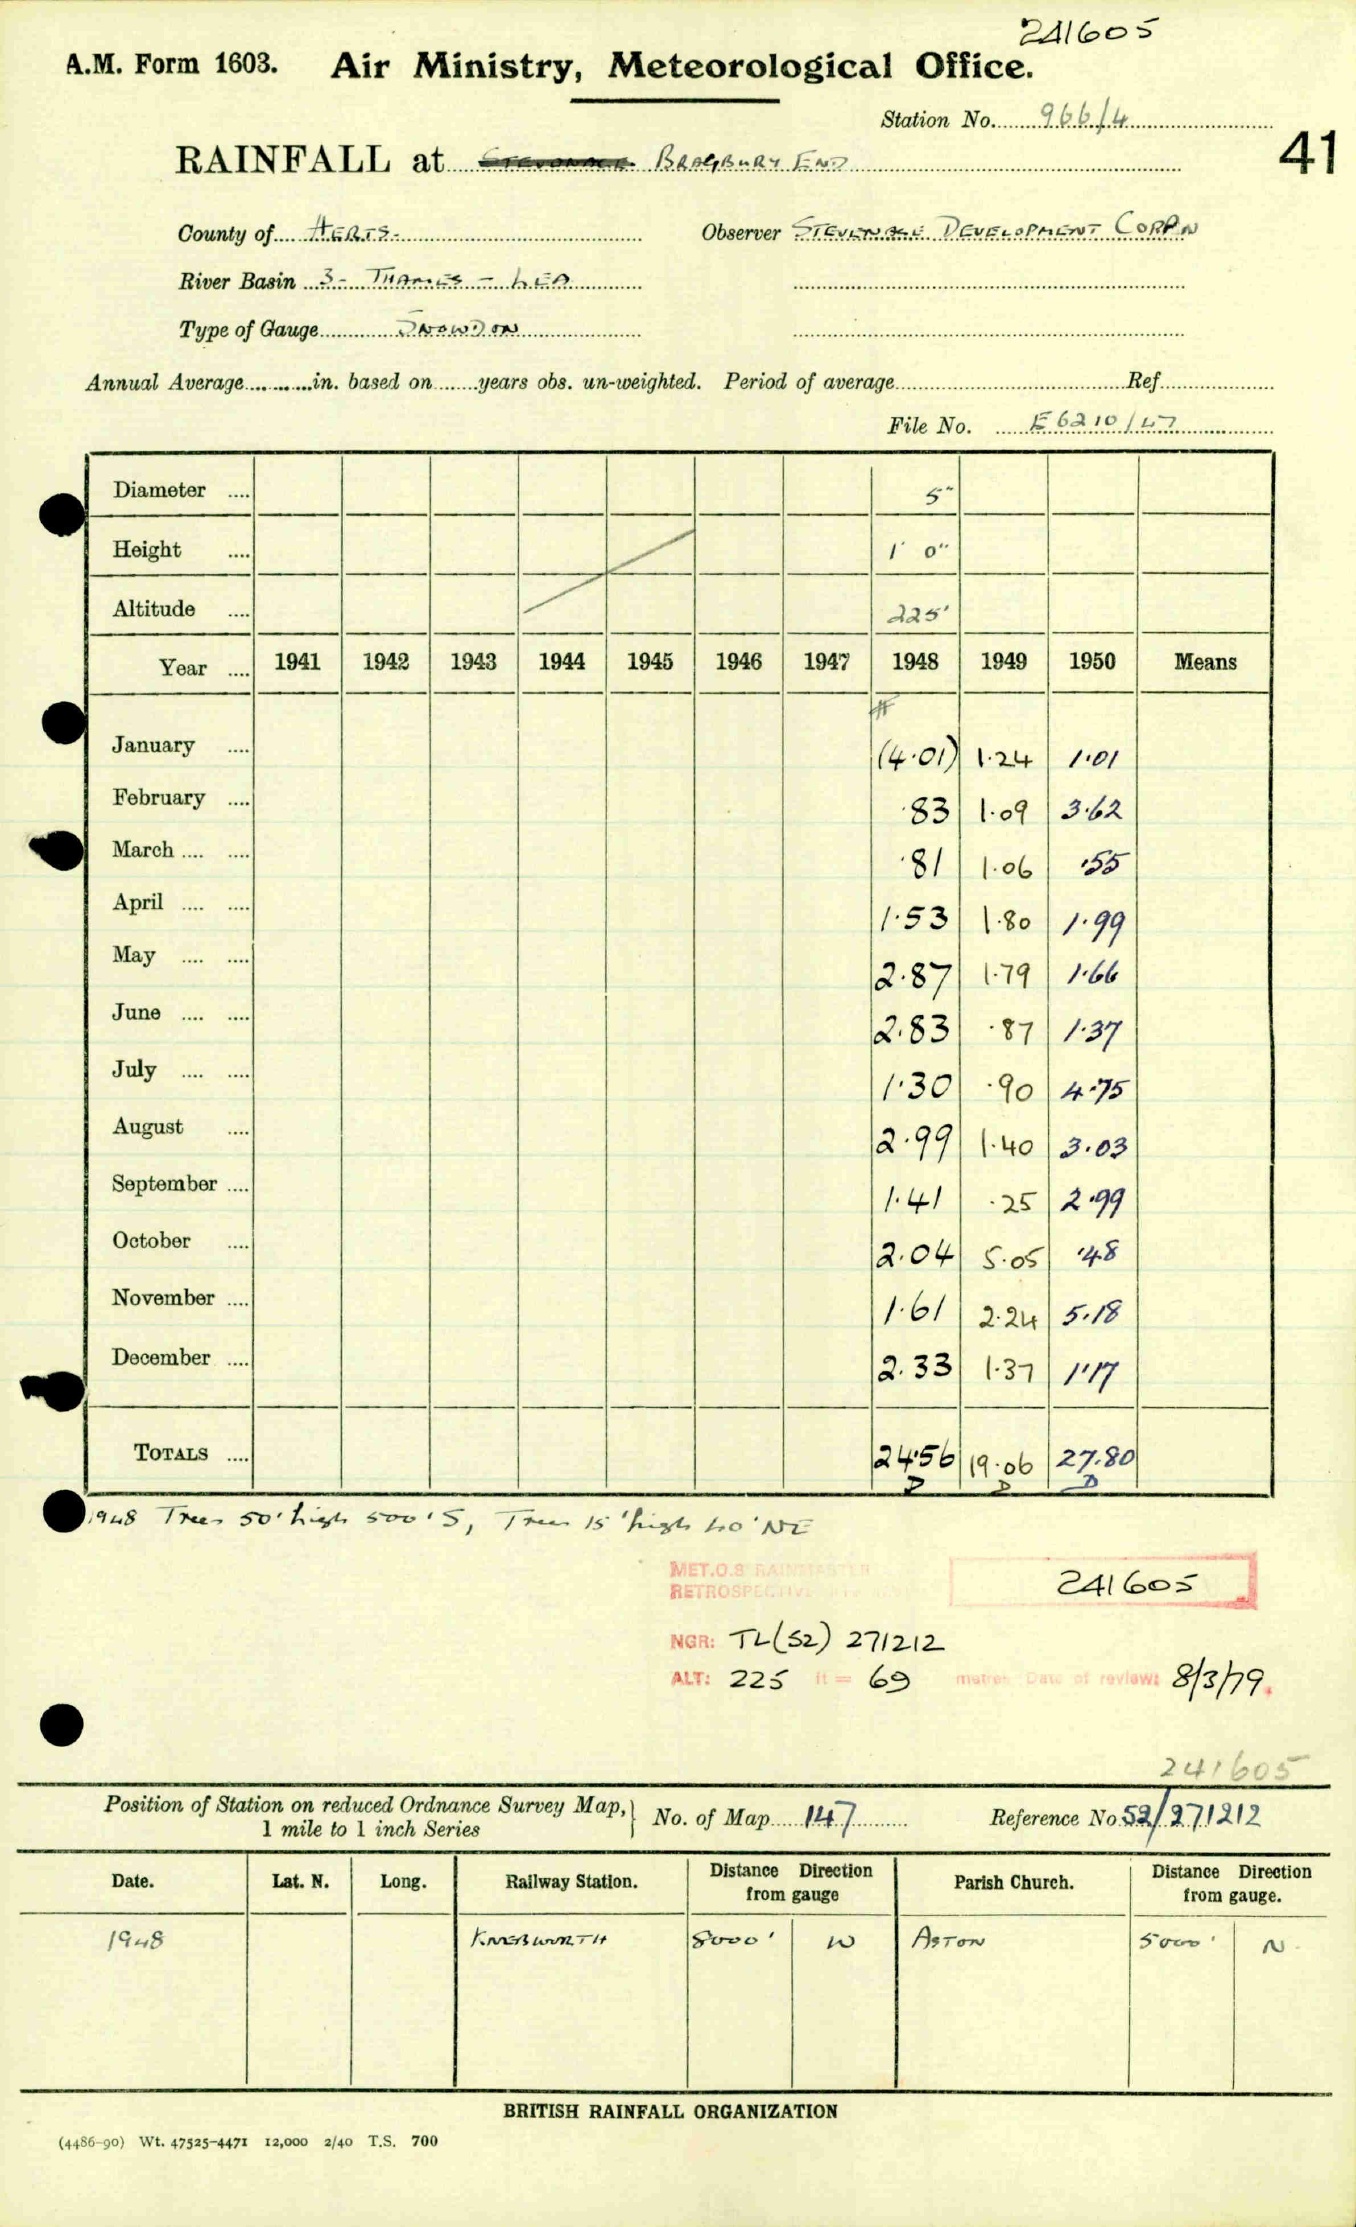 241605
A.M. Form 1603. Air Ministry, Meteorological Office.
Station No. 966/4
41
RAINFALL at Stevenage BRAGBURY END
County of HERTS- Observer STEVENAGE DEVELOPMENT CORP'N
River Basin 3- THAMES - LEA
Type of Gauge SNOWDON
Annual Average in. based on years obs. un-weighted. Period of average Ref
File No. E6210/47
Diameter .... 5"
Height .... 1' 0"
Altitude .... 225'
Year .... 1941 1942 1943 1944 1945 1946 1947 1948 1949 1950 Means
#
January .... (4.01) 1.24 1.01
February .... .83 1.09 3.62
March .... .... .81 1.06 .55
April .... .... 1.53 1.80 1.99
May .... .... 2.87 1.79 1.66
June .... .... 2.83 .87 1.37
July .... .... 1.30 .90 4.75
August .... 2.99 1.40 3.03
September .... 1.41 .25 2.99
October .... 2.04 5.05 .48
November .... 1.61 2.24 5.18
December .... 2.33 1.37 1.17
TOTALS .... 24.56 19.06 27.80
D D D
1948 Trees 50' high 500' S, Trees 15' high 40' NE
MET.O.8 RAINMASTER
RETROSPECTIVE
241605
NGR: TL(52) 271212
ALT: 225 ft = 69 metres Date of review: 8/3/79.
241605
Position of Station on reduced Ordnance Survey Map,} No. of Map 147 Reference No 52/271212
1 mile to 1 inch Series
Date. Lat. N. Long. Railway Station. Distance Direction from gauge Parish Church. Distance Direction from gauge.
1948 KNEBWORTH 8000' W ASTON 5000' N
BRITISH RAINFALL ORGANIZATION
(4486-90) Wt. 47525-4471 12,000 2/40 T.S. 700